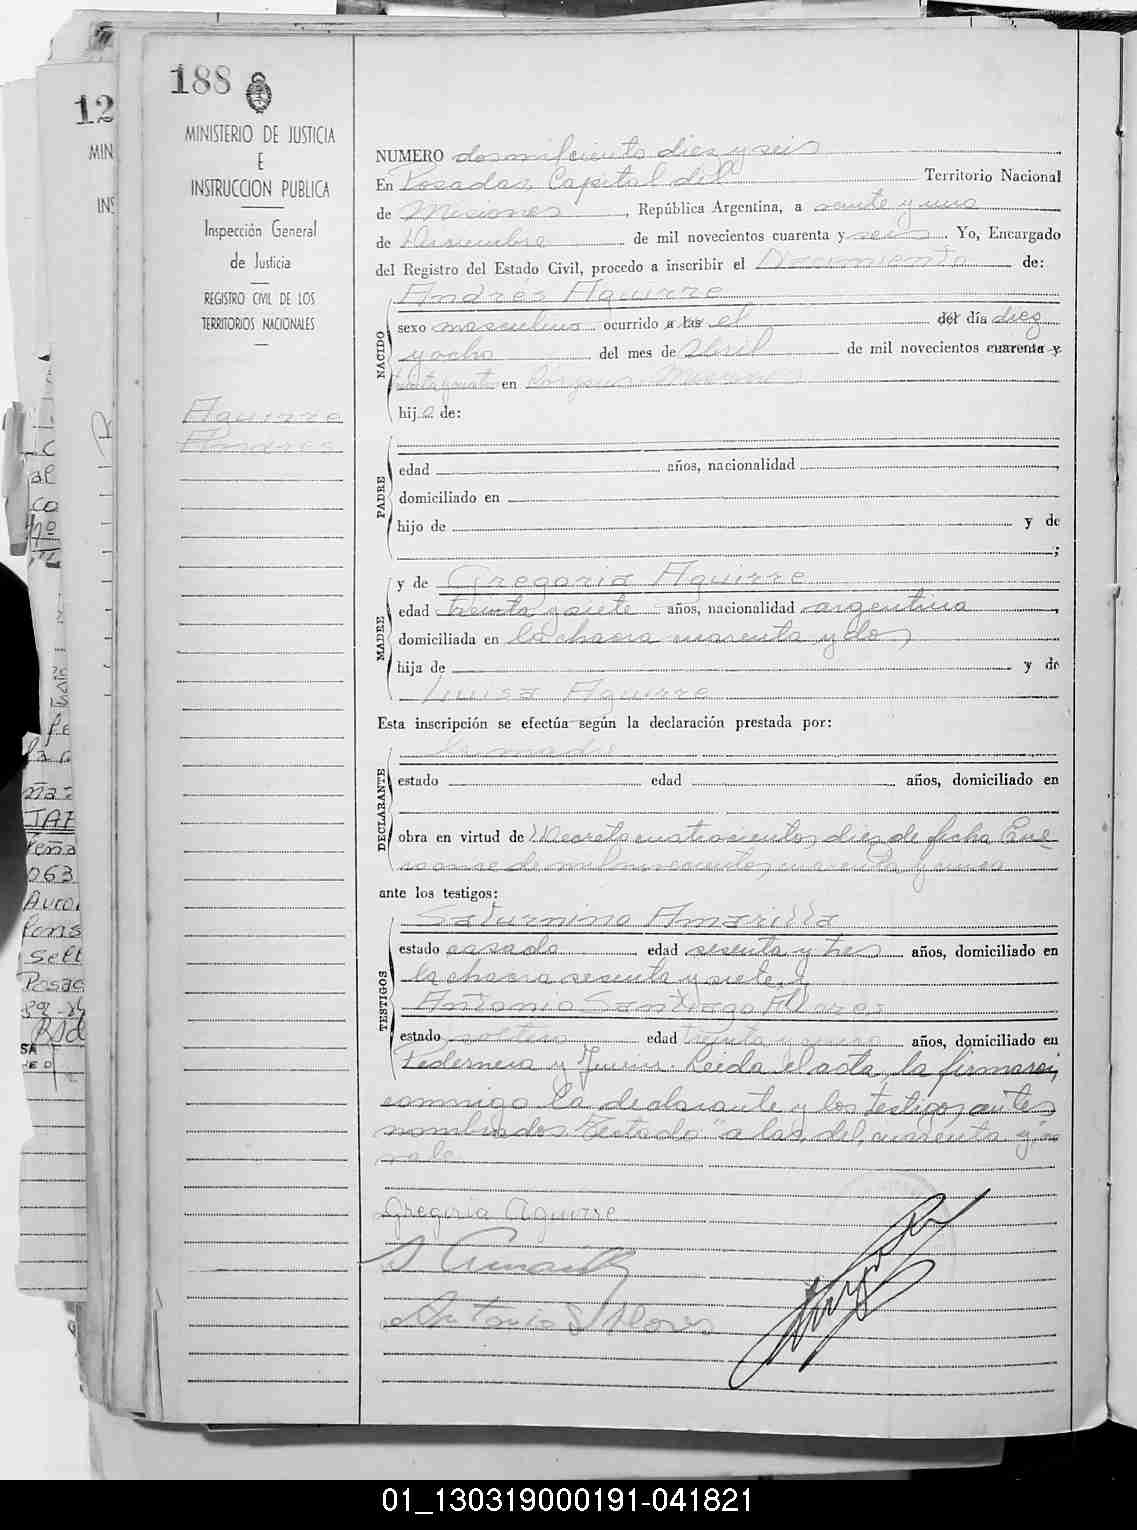 188
12
MINISTERIO DE JUSTICIA
MIN
E
INSTRUCCION PUBLICA
INS
Inspección General
de Justicia
REGISTRO CIVIL DE LOS
TERRITORIOS NACIONALES
Aguirre
Andres
NUMERO dos mil ciento diez y seis
En Posadas, Capital del Territorio Nacional
de Misiones, República Argentina, a veinte y uno
de Diciembre de mil novecientos cuarenta y seis. Yo, Encargado
del Registro del Estado Civil, procedo a inscribir el Nacimiento de:
NACIDO
Andrés Aguirre
sexo masculino ocurrido a las el del día diez
y ocho del mes de Abril de mil novecientos cuarenta y
en Corpus Misiones
hijo de:
PADRE
edad años, nacionalidad ,
domiciliado en
hijo de y de
;
MADRE
y de Gregoria Aguirre
edad treinta y siete años, nacionalidad argentina ,
domiciliada en la chacra cuarenta y dos,
hija de y de
Luisa Aguirre
Esta inscripción se efectúa según la declaración prestada por:
DECLARANTE
la madre
estado edad años, domiciliado en
obra en virtud de Decreto cuatrocientos diez de fecha Ene
ro once de mil novecientos cuarenta y cinco
ante los testigos:
TESTIGOS
Saturnino Amarilla
estado casado edad sesenta y tres años, domiciliado en
la chacra sesenta y siete, y
Antonio Santiago Flores
estado soltero edad treinta y años, domiciliado en
Pedernera y Junin. Leida el acta, la firmaron
conmigo la declarante y los testigos antes
nombrados. Testado "a las, del, cuarenta y" no
vale
Gregoria Aguirre
S Amarilla
Antonio S Flores
al
co
TAF
Peña
063
Auror
Pons
Sell
Posac
01_130319000191-041821